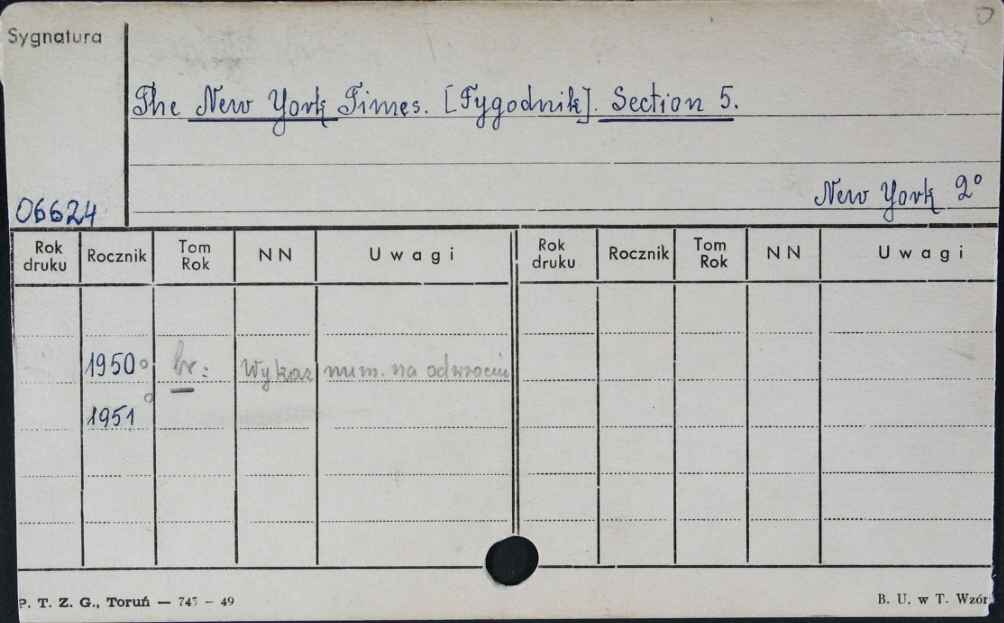 Sygnatura
The New York Times. [Tygodnik]. Section 5.
New York 2°
06624
Rok druku Rocznik Tom Rok NN Uwagi Rok druku Rocznik Tom Rok NN Uwagi
1950° br: Wykaz num. na odwrocie
1951°
P. T. Z. G., Toruń — 745 – 49 B. U. w T. Wzór